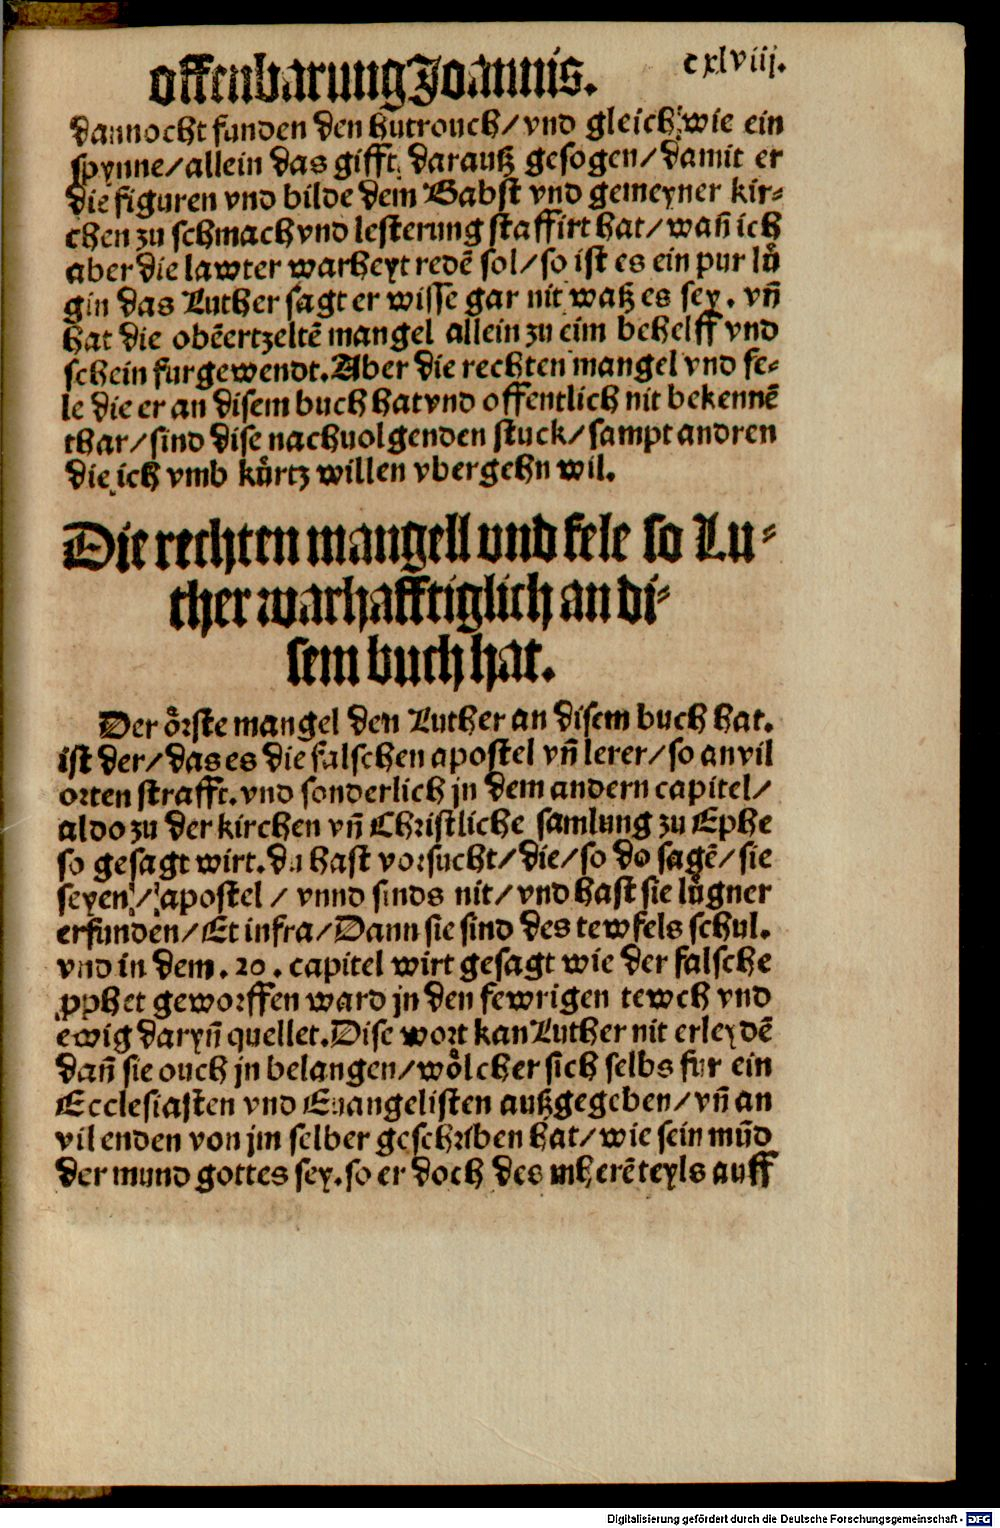 offenbarung Joannis. cxlviij.
dannocht funden den hutrouch/ vnd gleich wie ein
spynne/ allein das gifft darautz gesogen/ damit er
die figuren vnd bilde dem Babst vnd gemeyner kir-
chen zu schmach vnd lesterung staffirt hat/ wañ ich
aber die lawter warheyt redē sol/ so ist es ein pur lů
gin das Luther sagt er wisse gar nit watz es sey. vñ
hat die obēertzeltē mangel allein zu eim behelff vnd
schein furgewendt. Aber die rechten mangel vnd fe-
le die er an disem buch hat vnd offentlich nit bekennē
thar/ sind dise nachuolgenden stuck/ sampt andren
die ich vmb kůrtz willen vbergehn wil.
Die rechten mangell vnd fele so Lu-
ther warhafftiglich an di-
sem buch hat.
Der o̊rste mangel den Luther an disem buch hat.
ist der/ das es die falschen apostel vñ lerer/ so an vil
orten strafft. vnd sonderlich jn dem andern capitel/
aldo zu der kirchen vñ Christliche samlung zu Ephe
so gesagt wirt. du hast vorsucht/ die/ so do sagē/ sie
seyen/ apostel/ vnnd sinds nit/ vnd hast sie lůgner
erfunden/ Et infra/ Dann sie sind des tewfels schul.
vnd in dem .20. capitel wirt gesagt wie der falsche
ꝓphet geworffen ward jn den fewrigen tewch vnd
ewig daryñ quellet. Dise wort kan Luther nit erleydē
dañ sie ouch jn belangen/ wo̊lcher sich selbs fur ein
Ecclesiasten vnd Euangelisten autzgegeben/ vñ an
vil enden von jm selber geschriben hat/ wie sein mūd
der mund gottes sey. so er doch des mherē teyls auff
Digitalisierung gefördert durch die Deutsche Forschungsgemeinschaft - DFG